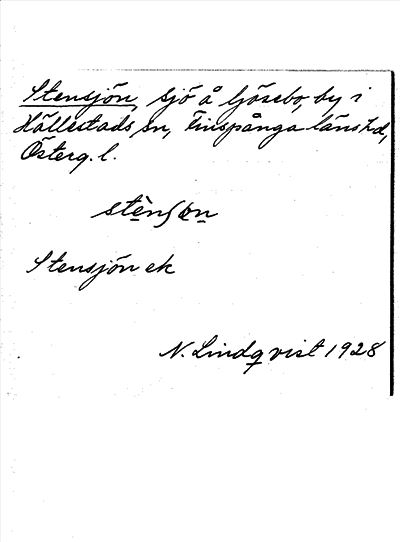 Stensjön, sjö å Gösebo, by i
Hällestads sn, Finspånga länshd,
Österg. l.
stènʃøn
Stensjön ek
N. Lindqvist 1928